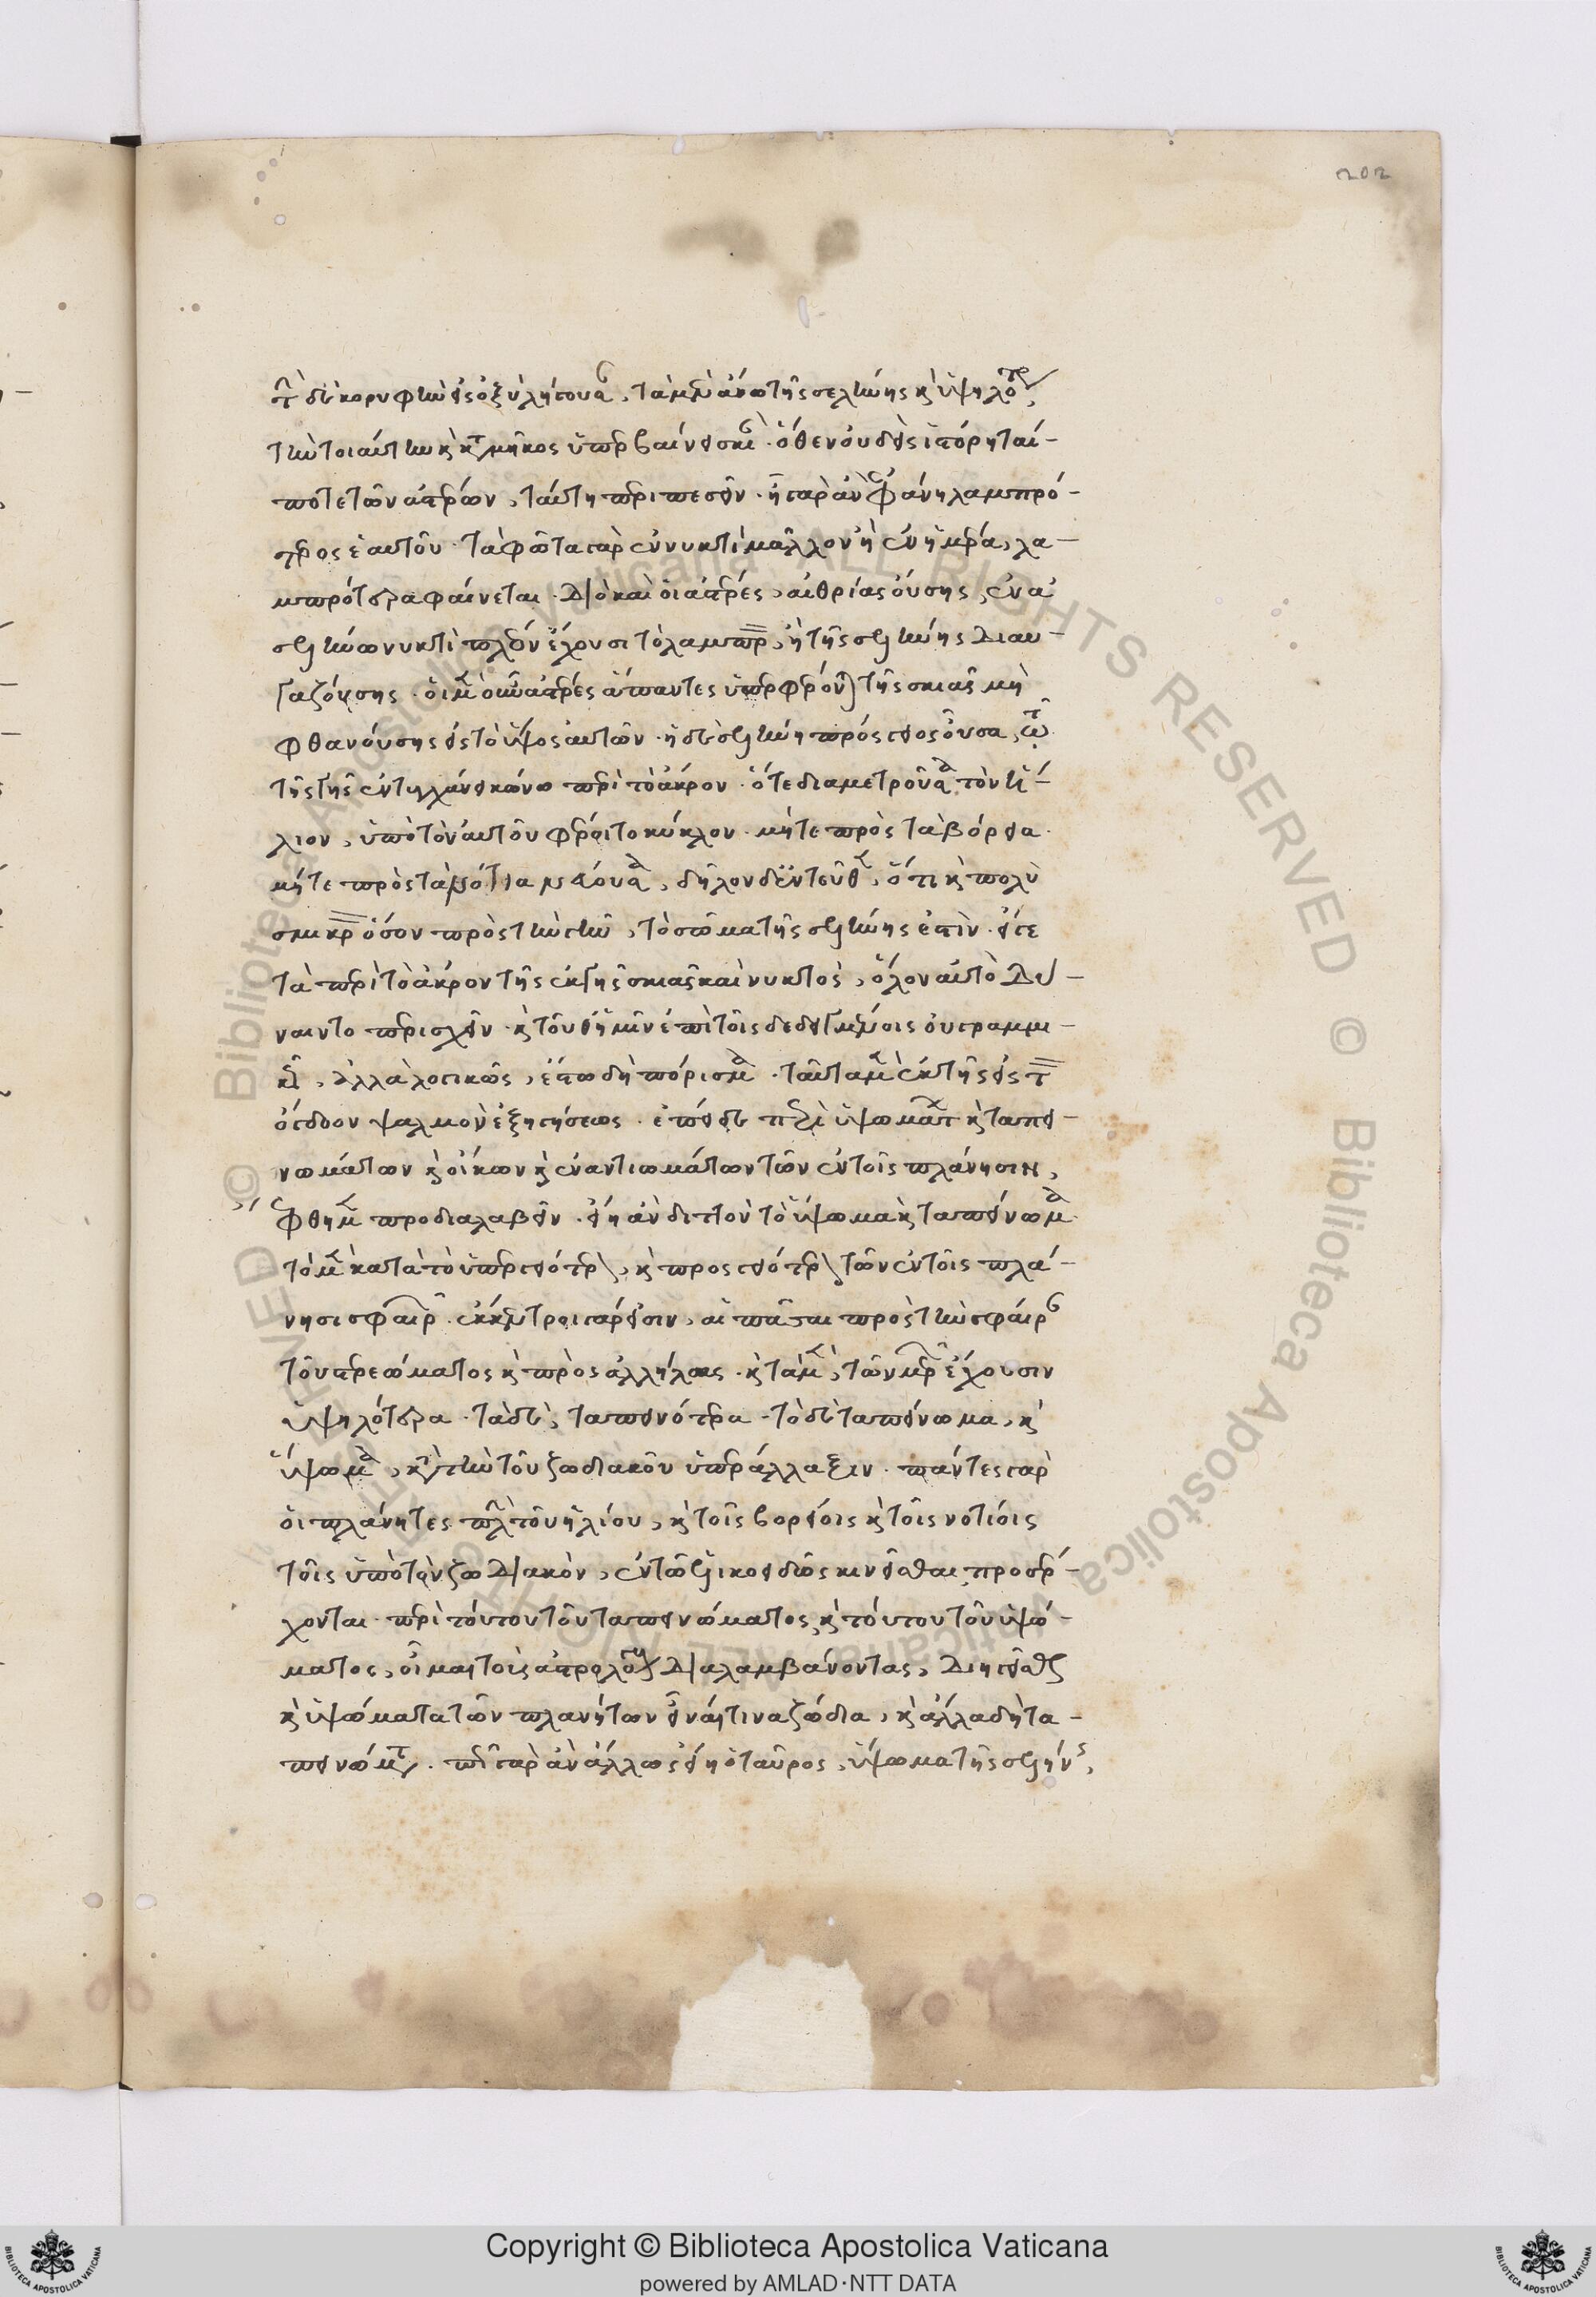 202
τὴν δὲ κορυφὴν εἰς ὀξὺ λήγουσαν, τὰ μὲν ἄνω τῆς σελήνης καὶ ὑψηλότερα
τὴν τοιαύτην καὶ κατὰ μῆκος ὑπερβαίνει σκιάν. ὅθεν οὐδεὶς ἱστόρηταί
ποτε τῶν ἀστέρων, ταύτη περιπεσεῖν. ἦ γὰρ ἂν ἐφάνη λαμπρό-
τερος ἑαυτοῦ. τὰ φῶτα γὰρ ἐν νυκτὶ μᾶλλον ἢ ἐν ἡμέρα, λα-
μπρότερα φαίνεται. διὸ καὶ οἱ ἀστέρες, αἰθρίας οὔσης, ἐν ἀ
σελήνω νυκτὶ πλέον ἔχουσι τὸ λαμπρὸν, ἢ τῆς σελήνης διαυ-
γαζούσης. οἱ μὲν οὖν ἀστέρες ἅπαντες ὑπερφέρουσι τῆς σκιᾶς μὴ
φθανούσης εἰς τὸ ὕψος αὐτῶν. ἡ δὲ σελήνη πρόσγειος οὖσα, τῶ
τῆς γῆς ἐντυγχάνει κώνω περὶ τὸ ἄκρον. ὅτε διαμετροῦσα τὸν ἥ-
λιον, ὑπὸ τὸν αὐτοῦ φέροιτο κύκλον. μήτε πρὸς τὰ βόρεια
μήτε πρὸς τὰ νότια νεύουσα, δῆλον δ' ἐντεῦθεν, ὅτι καὶ πολὺ
σμικρὸν ὅσον πρὸς τὴν γῆν, τὸ σῶμα τῆς σελήνης ἐστὶν. εἴγε
τὰ περὶ τὸ ἄκρον τῆς ἐκ γῆς σκιᾶς καὶ νυκτὸς, ὅλον αὐτὸ δύ-
ναιντο περισχεῖν. καὶ τοῦθ' ἡμῖν ἐπὶ τοῖς δεδειγμένοις οὐ γραμμι-
κῶς, ἀλλὰ λογικῶς, ἔστω δὴ πόρισμα. ταῦτα μὲν ἐκ τῆς εἰς τὸν
ὄγδοον ψαλμὸν ἐξηγήσεως. ἐπεὶ δὲ περὶ ὑψωμάτων καὶ ταπει-
νωμάτων καὶ οἴκων καὶ ἐναντιωμάτων τῶν ἐν τοῖς πλάνησιν,
ἔφθημεν προδιαλαβεῖν. εἴη ἂν διττὸν τὸ ὕψωμα καὶ ταπείνωμα.
τὸ μὲν κατὰ τὸ ὑπεργειότερον, καὶ προσγειότερον τῶν ἐν τοῖς πλά-
νησι σφαιρῶν. ἔκκεντροι γάρ εἰσιν, αἱ πᾶσαι πρὸς τὴν σφαῖραν
τοῦ στερεώματος καὶ πρὸς ἀλλήλας. καὶ τὰ μὲν, τῶν μερῶν ἔχουσιν
ὑψηλότερα. τὰ δὲ, ταπεινότερα. τὸ δὲ ταπείνωμα, καὶ
ὕψωμα, κατὰ τὴν τοῦ ζωδιακοῦ ὑπεράλλαξιν. πάντες γὰρ
οἱ πλάνητες πλὴν τοῦ ἡλίου, καὶ τοῖς βορείοις καὶ τοῖς νοτίοις
τοῖς ὑπὸ τὸν ζωδιακὸν, ἐν τῶ ἑλικοειδῶς κινεῖσθαι προσέρ-
χονται. περὶ τούτου τοῦ ταπεινώματος, καὶ τούτου τοῦ ὑψώ-
ματος, οἶμαι τοὺς ἀστρολόγους διαλαμβάνοντας, διηγεῖσθαι
καὶ ὑψώματα τῶν πλανήτων εἶναί τινα ζώδια, καὶ ἄλλα δὴ τα-
πεινώματα. πῶς γὰρ ἂν ἄλλως εἴη ὁ ταῦρος, ὕψωμα τῆς σελήνης,
Copyright © Biblioteca Apostolica Vaticana
powered by AMLAD·NTT DATA